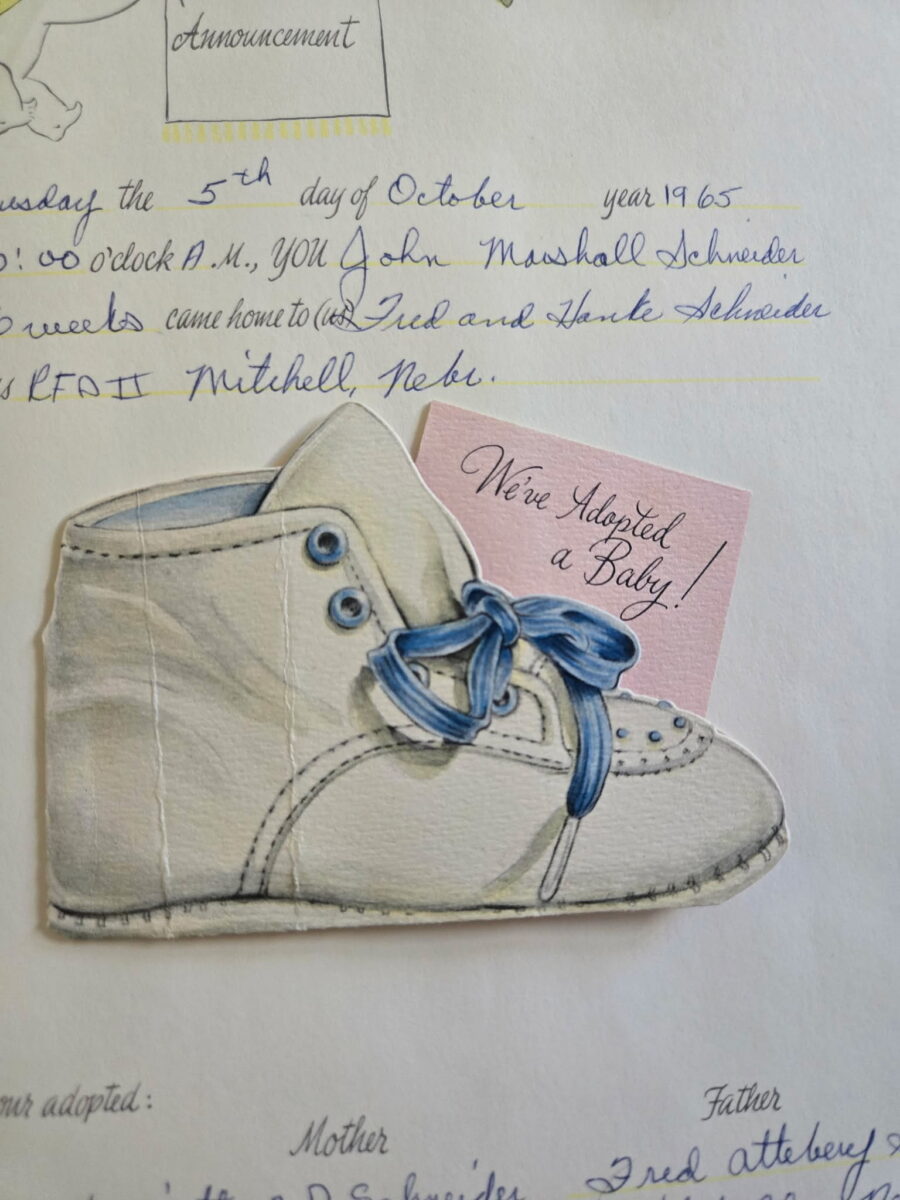 Announcement
the 5th day of October year 1965
:00 o'clock A.M., YOU John Marshall Schneider
weeks came home to (us) Fred and Hanke Schneider
RFD II Mitchell, Nebr.
We've Adopted
a Baby!
our adopted:
Mother
Father
Fred attebery
D Schneider